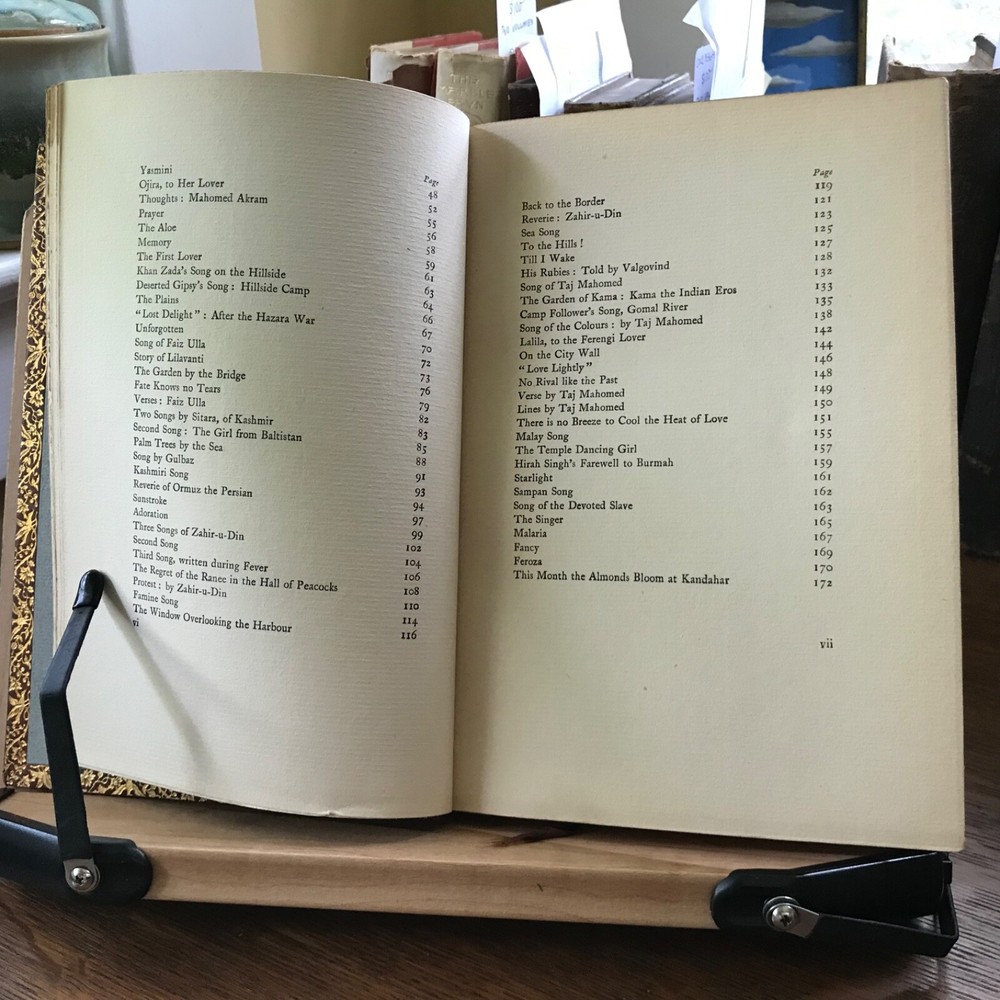 Page
Yasmini 48
Ojira, to Her Lover 52
Thoughts : Mahomed Akram 55
Prayer 56
The Aloe 58
Memory 59
The First Lover 61
Khan Zada's Song on the Hillside 63
Deserted Gipsy's Song : Hillside Camp 64
The Plains 66
"Lost Delight" : After the Hazara War 67
Unforgotten 70
Song of Faiz Ulla 72
Story of Lilavanti 73
The Garden by the Bridge 76
Fate Knows no Tears 79
Verses : Faiz Ulla 82
Two Songs by Sitara, of Kashmir 83
Second Song : The Girl from Baltistan 85
Palm Trees by the Sea 88
Song by Gulbaz 91
Kashmiri Song 93
Reverie of Ormuz the Persian 94
Sunstroke 97
Adoration 99
Three Songs of Zahir-u-Din 102
Second Song 104
Third Song, written during Fever 106
The Regret of the Ranee in the Hall of Peacocks 108
Protest : by Zahir-u-Din 110
Famine Song 114
The Window Overlooking the Harbour 116
vi
Page
Back to the Border 119
Reverie : Zahir-u-Din 121
Sea Song 123
To the Hills ! 125
Till I Wake 127
His Rubies : Told by Valgovind 128
Song of Taj Mahomed 132
The Garden of Kama : Kama the Indian Eros 133
Camp Follower's Song, Gomal River 135
Song of the Colours : by Taj Mahomed 138
Lalila, to the Ferengi Lover 142
On the City Wall 144
"Love Lightly" 146
No Rival like the Past 148
Verse by Taj Mahomed 149
Lines by Taj Mahomed 150
There is no Breeze to Cool the Heat of Love 151
Malay Song 155
The Temple Dancing Girl 157
Hirah Singh's Farewell to Burmah 159
Starlight 161
Sampan Song 162
Song of the Devoted Slave 163
The Singer 165
Malaria 167
Fancy 169
Feroza 170
This Month the Almonds Bloom at Kandahar 172
vii